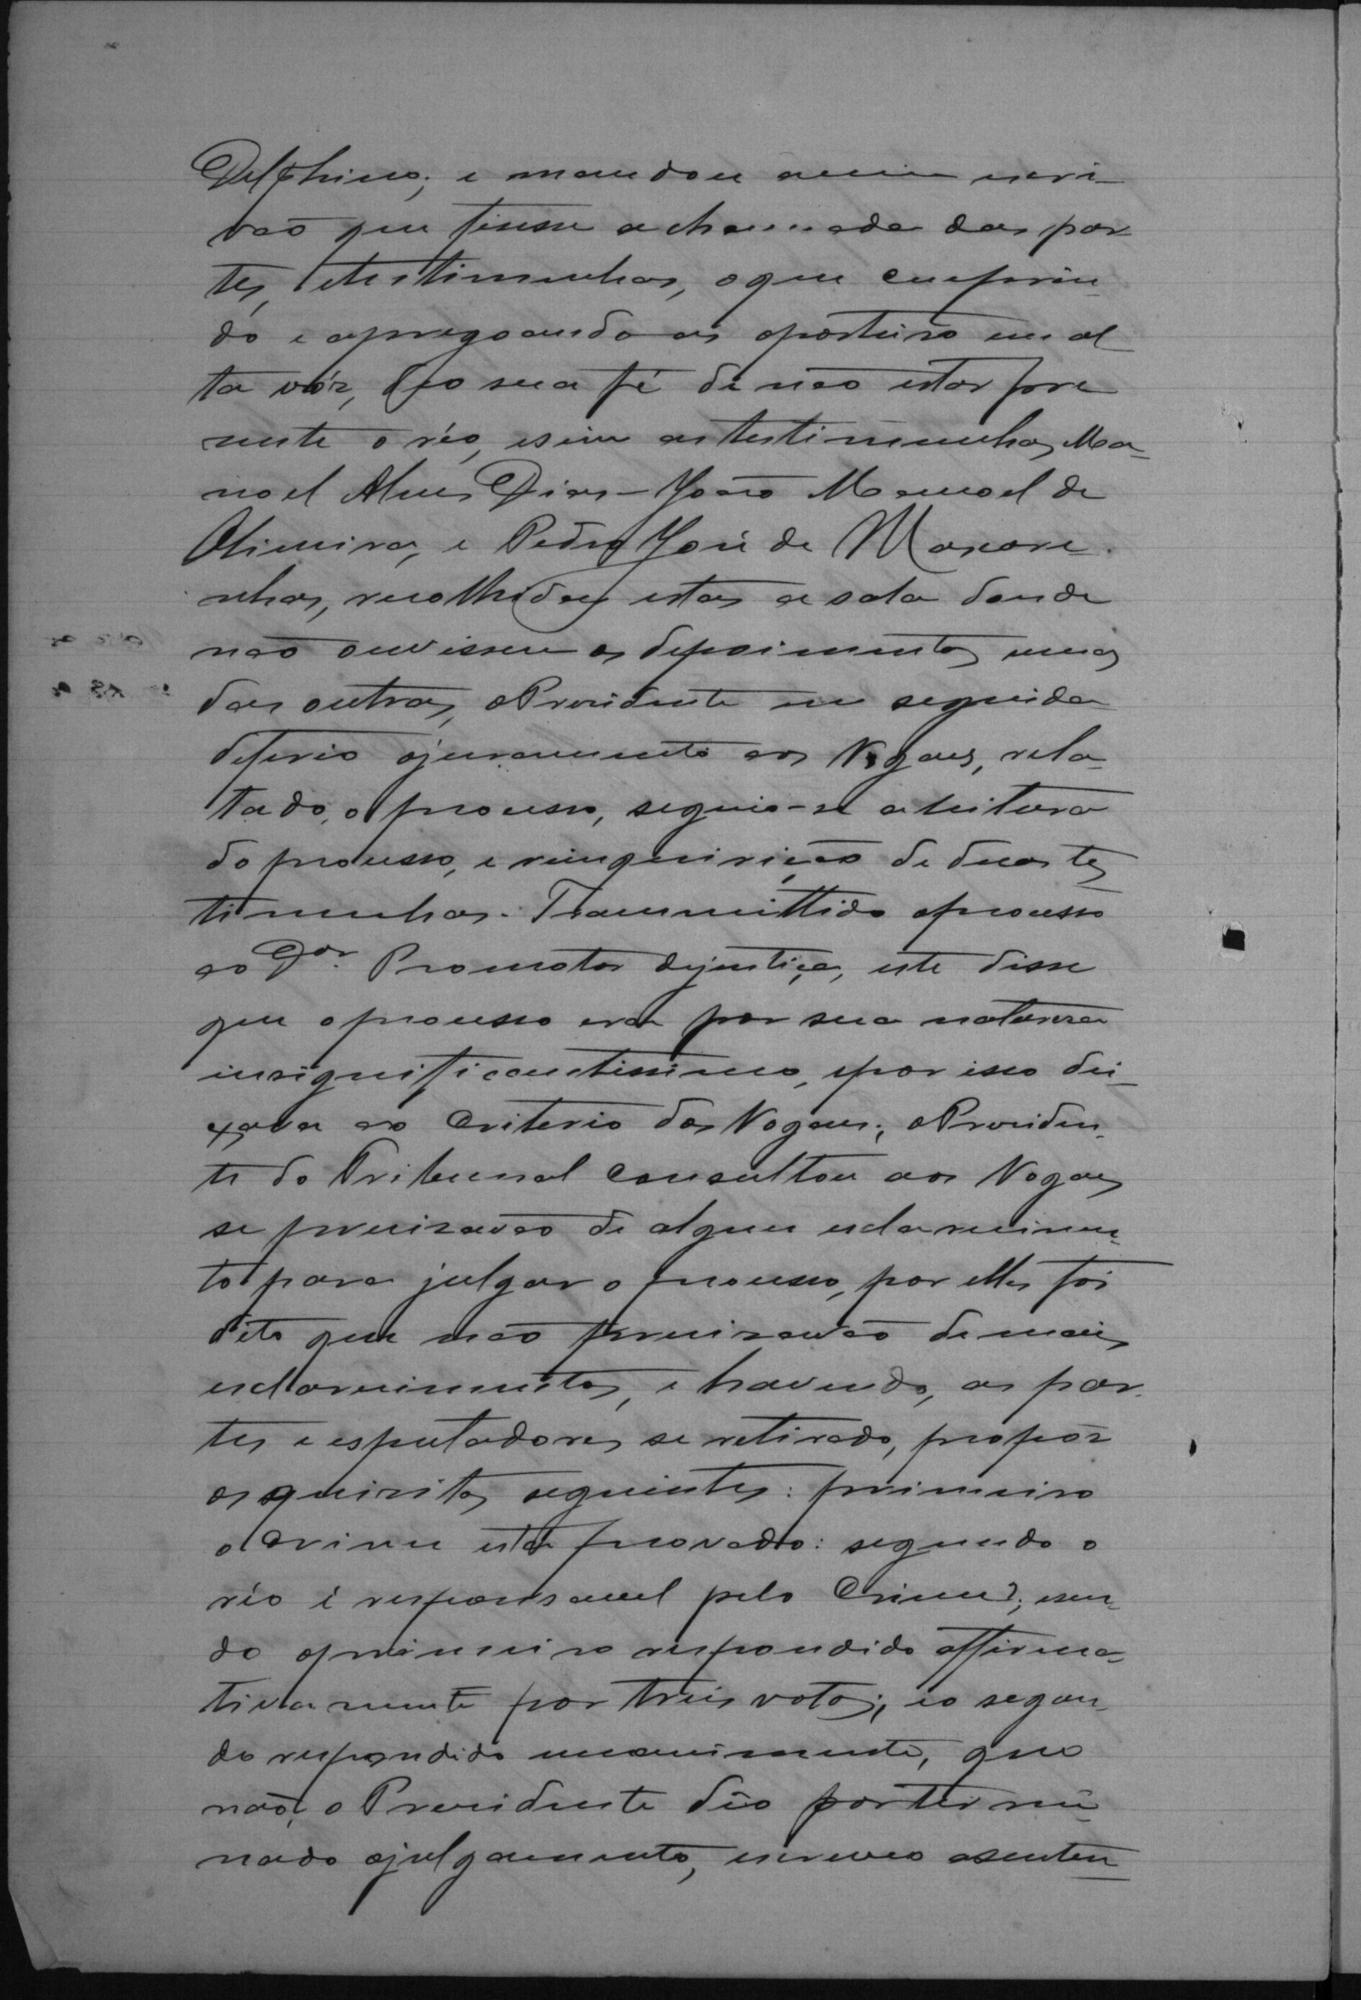 Delphino; e mandou a mim escri-
vão que fisesse a chamada das par
tes, e testimunhas, o que cumprin-
do e apregoando as o porteiro em al
ta vóz, deo sua fé de não estar pre
sente o réo, e sim as testimunhas, Ma-
noel Alves Dias - João Manoel de
Oliveira, e Pedro José de Mascare-
nhas, recolhidas estas a sala donde
não ouvissem os depoimentos umas
das outras, o Presidente em seguida
deferio o juramento aos Vogaes, rela-
tado, o processo, seguio-se a leitura
do processo, e reinquirição de duas tes
timunhas. Transmittido o processo
ao Dor. Promotor de justiça, este disse
que o processo era por sua natureza
insignificantissimo, e por isso dei-
xava ao criterio dos Vogaes; o Presiden-
te do Tribunal consultou aos Vogaes
se precizavão de algum esclarecimen-
to para julgar o processo, por elles foi
dito que não precizavão de mais
esclarecimentos, e havendo, as par-
tes e espectadores se retirado, propoz
os quizitos seguintes: primeiro
o crime está provado: segundo o
réo é responsavel pelo crime?; sen-
do o primeiro respondido affirma-
tivamente por tres votos; e o segun-
do respondido unanimente, que
não, o Presidente déo por termi-
nado o julgamento, escreveo a senten